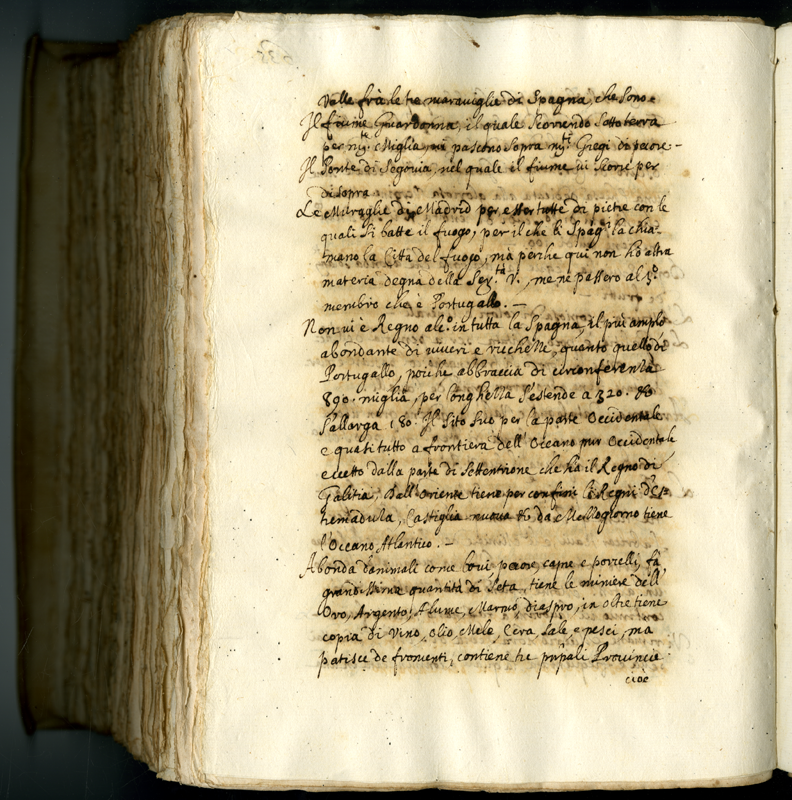 Valle frà le tre marauiglie di Spagna, che sono
Il fiume Guardanna, il quale scorrendo sotto terra
per mti. Miglia, ui pascono sopra mti. Gregi di pecore -
Il Ponte di Segouia, nel quale il fiume ui scorre per
di sopra
Le Muraglie di Madrid per esser tutte di pietre con le
quali si batte il fuogo, per il che li Spagli la chia-
mano la Città del fuogo, mà perche qui non hò altra
materia degna della Ser.tà V., me ne passero al 5°.
membro che è Portugallo. -
Non ui è Regno alc.° in tutta la Spagna, il più amplo
abondante di uiueri e ricchesse, quanto quello di
Portugallo, poiche abbraccia di circonferenza
890. miglia, per longhezza s'estende a 320. &
s'allarga 180. Il sito suo per la parte Occidentale
e quasi tutto a frontiera dell'Oceano pur Occidentale
eccetto dalla parte di Settentrione che hà il Regno di
Galitia, Dall'Oriente tiene per confini li Regni d'Es-
tremadula, Castiglia nuoua & da Mezzogiorno tiene
l'Oceano Atlantico. -
Abonda d'animali come boui, pecore, capre e porcelli, fà
grandissima quantità di Seta, tiene le miniere dell'
Oro, Argento, Alume, Marmo, diaspro, in oltre tiene
copia di Vino, olio, Mele, Cera, Sale, e pesci, ma
patisce de fromenti, contiene tre prnpali Prouincie
cioè